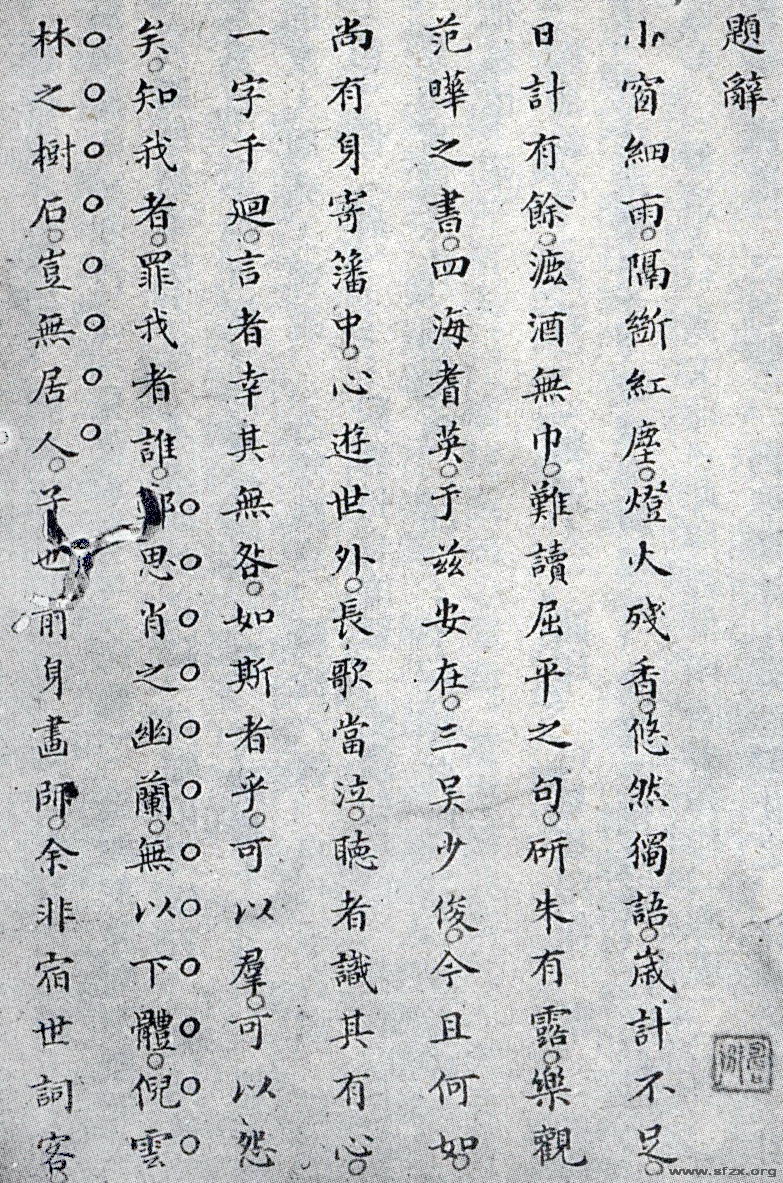 題辭
小窗細雨。隔斷紅塵。燈火殘香。悠然獨語。歲計不足。
日計有餘。漉酒無巾。難讀屈平之句。研朱有露。樂觀
范曄之書。四海耆英。于兹安在。三吴少俊。今且何如。
尚有身寄籓中。心遊世外。長歌當泣。聽者識其有心。
一字千迴。言者幸其無咎。如斯者乎。可以羣。可以怨
矣。知我者。罪我者誰。鄭思肖之幽蘭。無以下體。倪雲
林之樹石。豈無居人。子也前身畫師。余非宿世詞客
www.sfzx.org